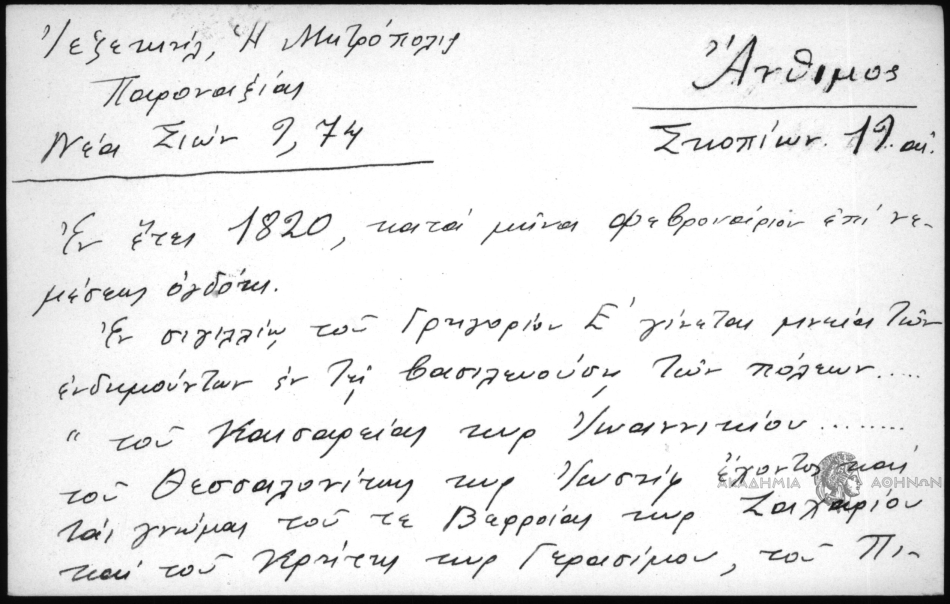 Ἰεζεκιήλ, Ἡ Μητρόπολις
Παροναξίας
Νέα Σιών 9, 74
Ἄνθιμος
Σκοπίων. 19. αἰ.
Ἐν ἔτει 1820, κατά μῆνα Φεβρουάριον ἐπί νε-
μέσεως ὀγδόης.
Ἐν σιγιλλίῳ τοῦ Γρηγορίου Ε΄ γίνεται μνεία τῶν
ἐνδημούντων ἐν τῇ βασιλευούσῃ τῶν πόλεων.....
“ τοῦ Καισαρείας κυρ Ἰωαννικίου........
τοῦ Θεσσαλονίκης κυρ Ἰωσήφ ἔχοντος καί
τάς γνώμας τοῦ τε Βερροίας κυρ Ζαχαρίου
καί τοῦ Κρήτης κυρ Γερασίμου, τοῦ Πι-
ΑΚΑΔΗΜΙΑ ΑΘΗΝΩΝ